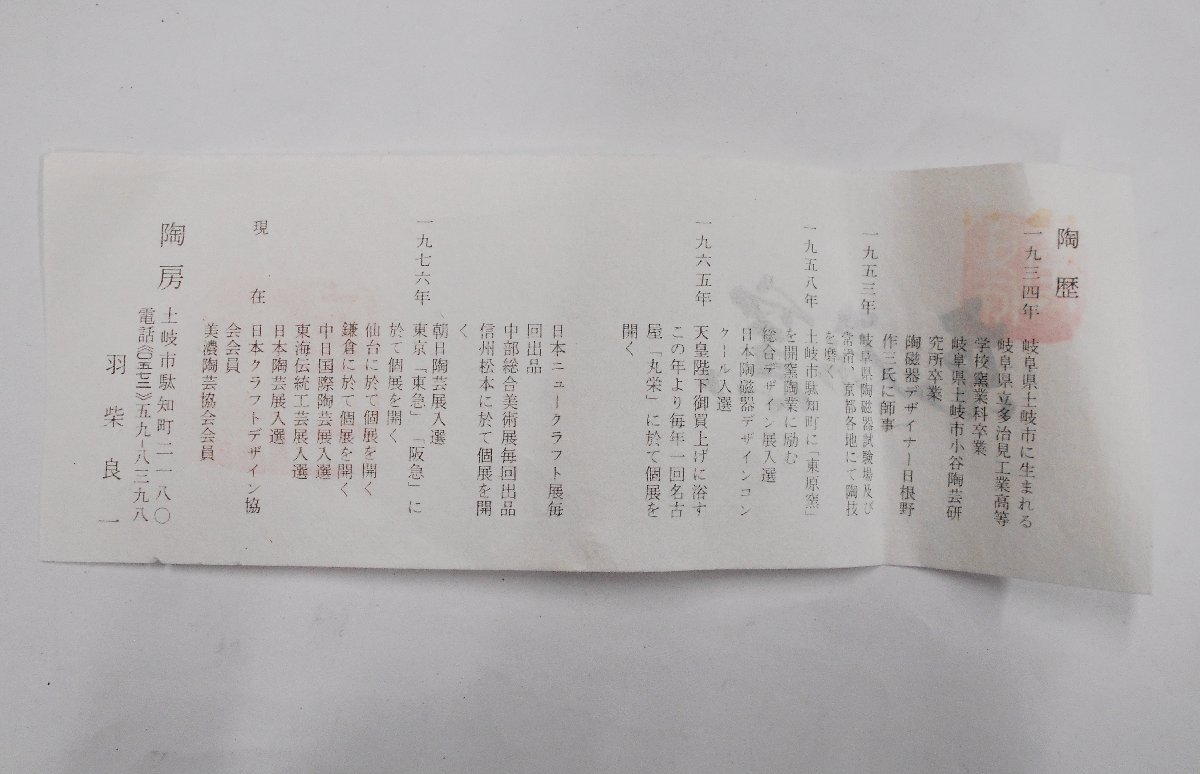 陶歴
一九三四年 岐阜県土岐市に生まれる
岐阜県立多治見工業高等
学校窯業科卒業
岐阜県土岐市小谷陶芸研
究所卒業
陶磁器デザイナー日根野
作三氏に師事
一九五三年 岐阜県陶磁器試験場及び
常滑、京都各地にて陶技
を磨く
一九五八年 土岐市駄知町に「東原窯」
を開窯陶業に励む
総合デザイン展入選
日本陶磁器デザインコン
クール入選
一九六五年 天皇陛下御買上げに浴す
この年より毎年一回名古
屋「丸栄」に於て個展を
開く
日本ニュークラフト展毎
回出品
中部総合美術展毎回出品
信州松本に於て個展を開
く
一九七六年 朝日陶芸展入選
東京「東急」「阪急」に
於て個展を開く
仙台に於て個展を開く
鎌倉に於て個展を開く
中日国際陶芸展入選
東海伝統工芸展入選
日本陶芸展入選
現在 日本クラフトデザイン協
会会員
美濃陶芸協会会員
陶房 土岐市駄知町二一八〇
電話《〇五七二》五九-八三九八
羽柴良一